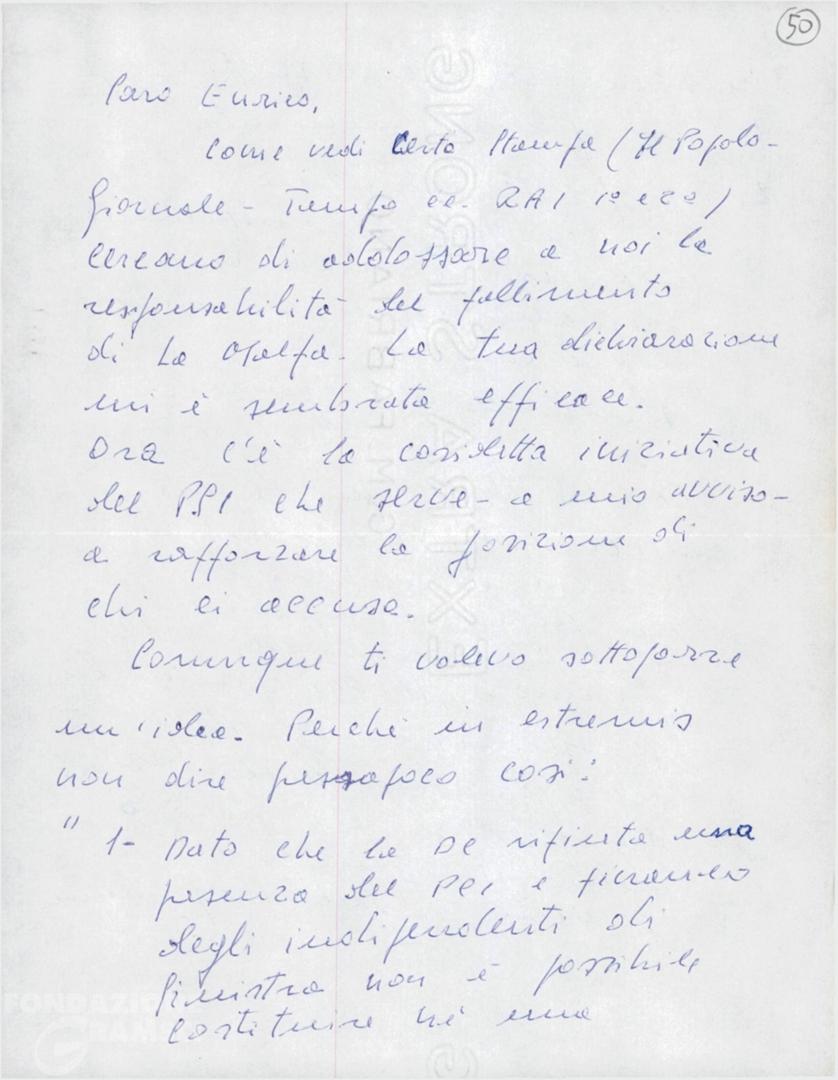 50
Caro Enrico,
come vedi certa stampa (Il Popolo -
Giornale - Tempo ec. RAI 1ª e 2ª)
cercano di addossare a noi la
responsabilità del fallimento
di La Malfa. La tua dichiarazione
mi è sembrata efficace.
Ora c'è la cosidetta iniziativa
del PSI che serve - a mio avviso -
a rafforzare la posizione di
chi ci accusa.
Comunque ti volevo sottoporre
un'idea. Perché in estremis
non dire pressapoco così:
" 1- Dato che la DC rifiuta una
presenza del PCI e financo
degli indipendenti di
sinistra non è possibile
costituire né una
EXTRA STRONG
FONDAZIONE
GRAMSCI